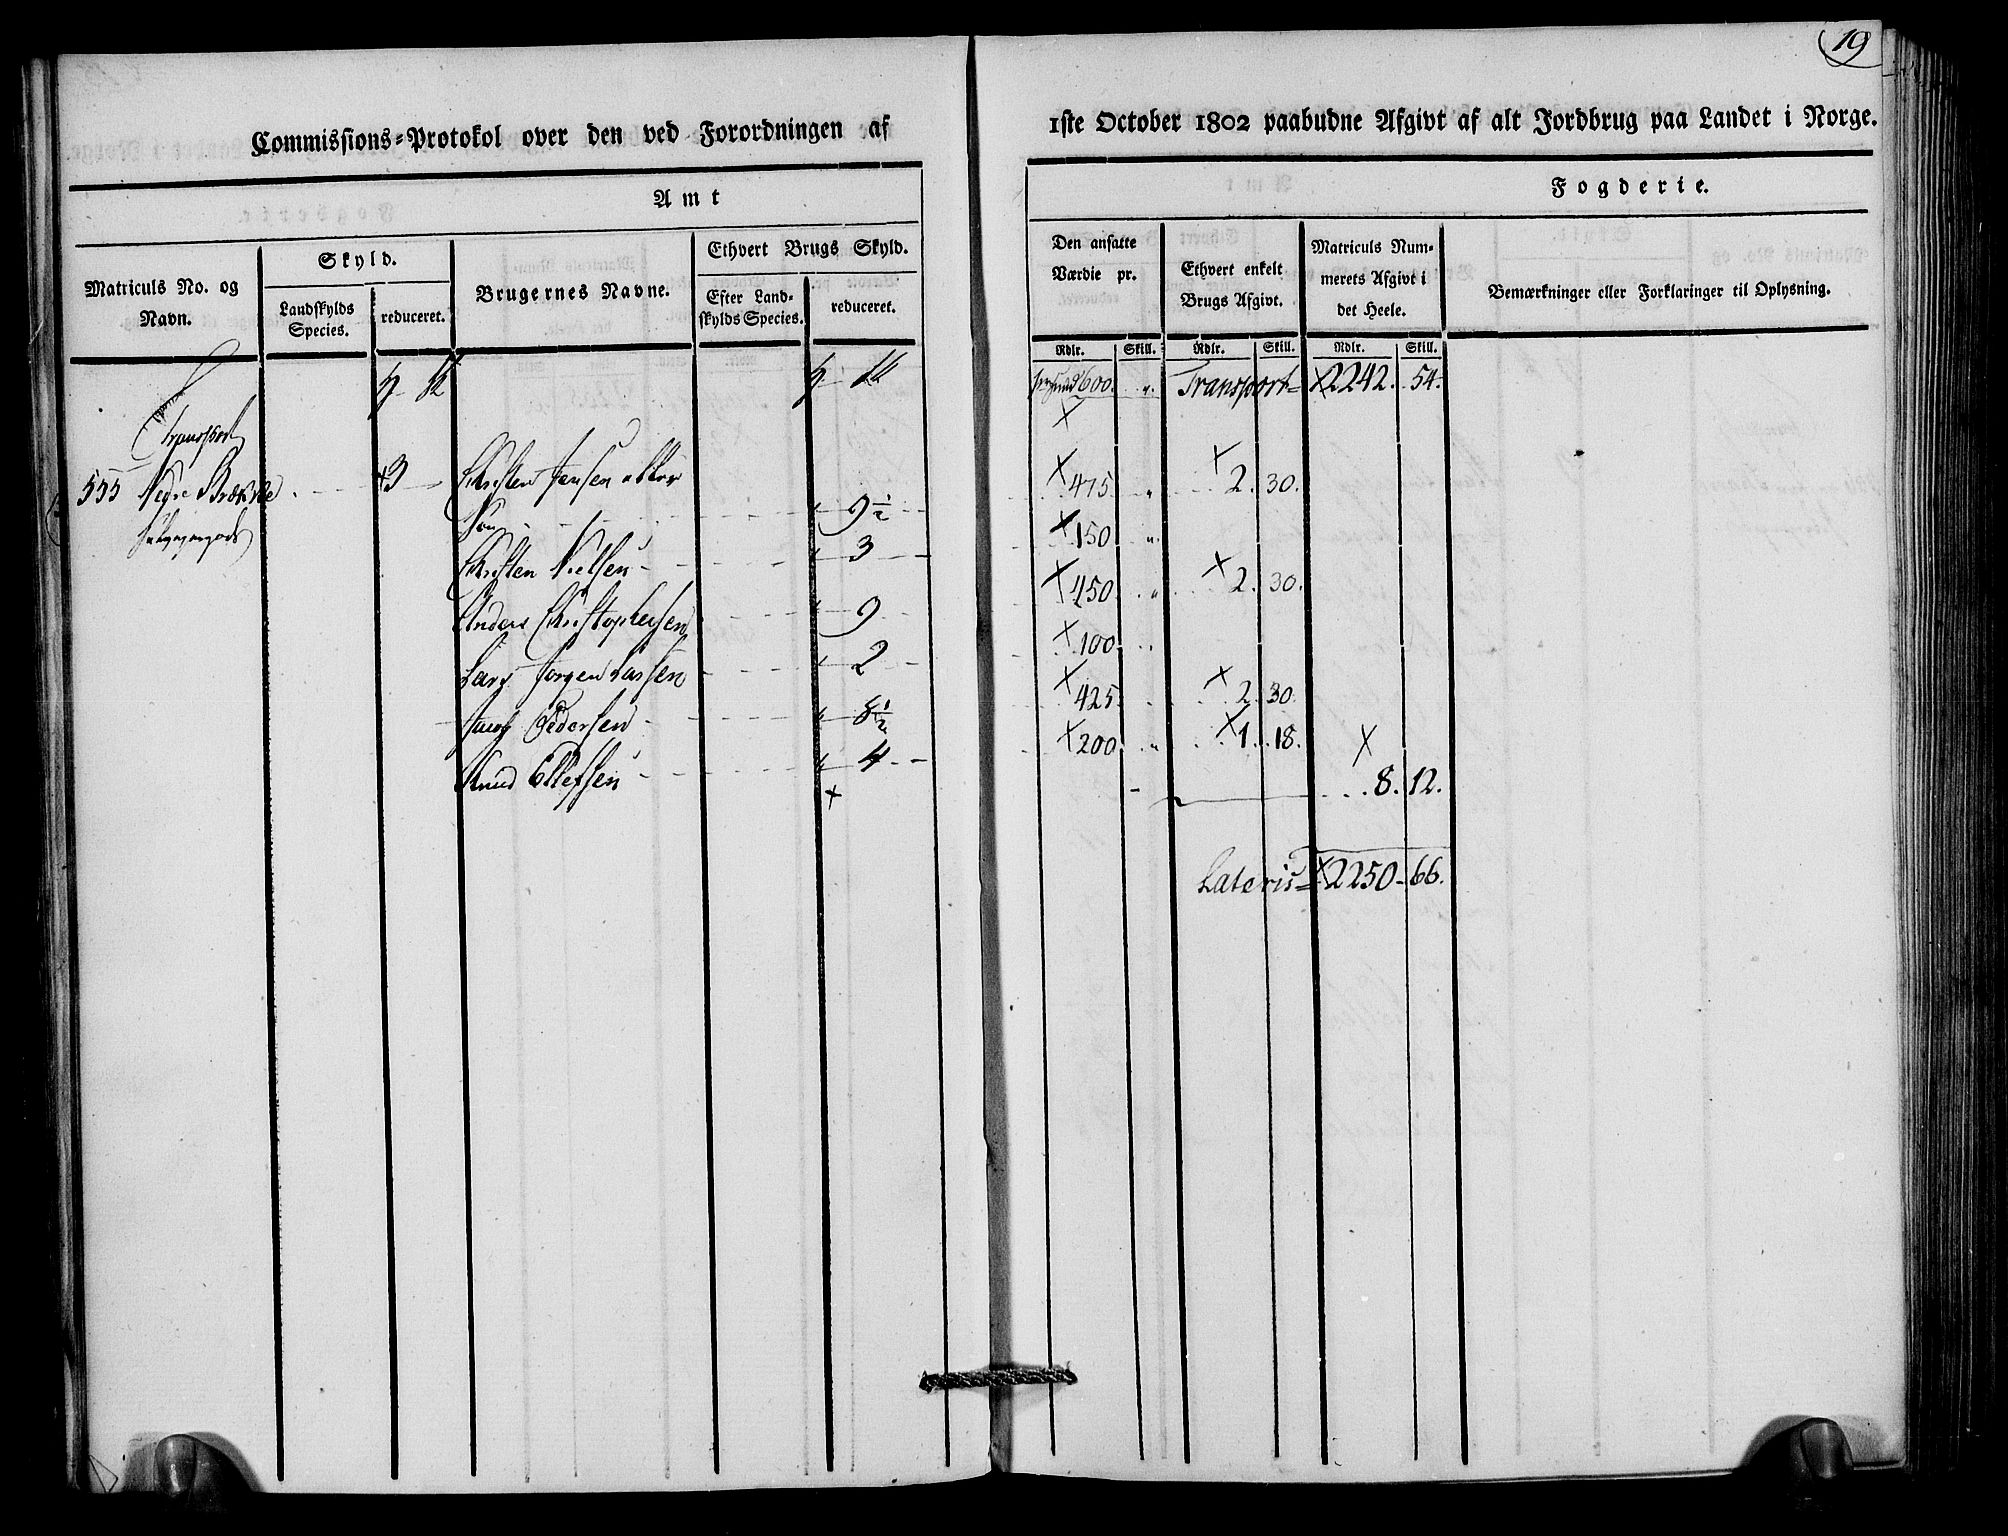 19
Commissions=Protokol over den ved Forordningen af
1ste October 1802 paabudne Afgivt af alt Jordbrug paa Landet i Norge.
Amt
Fogderie.
Matriculs No. og Navn.
Skyld.
Landskylds Species.
reduceret.
Brugernes Navne.
Ethvert Brugs Skyld.
Efter Landskylds Species.
reduceret.
Den ansatte Værdie pr.
Ethvert enkelt Brugs Afgivt.
Matriculs Nummerets Afgivt i det Heele.
Bemærkninger eller Forklaringer til Oplysning.
Rdlr. Skill. Rdlr. Skill. Rdlr. Skill.
600. Transport= 2242. 54.
Transport
555 Nedre Brække 3 Christen Jensen 475 2. 30.
9 1/2
150
Christen Nielsen 3
450 2. 30.
Anders Christophersen 9
100
Lars Jørgen Larsen 2
425 2. 30.
Pedersen 8 1/2
200 1. 18.
Knud Ellefsen 4
8. 12.
Lateris= 2250 66.